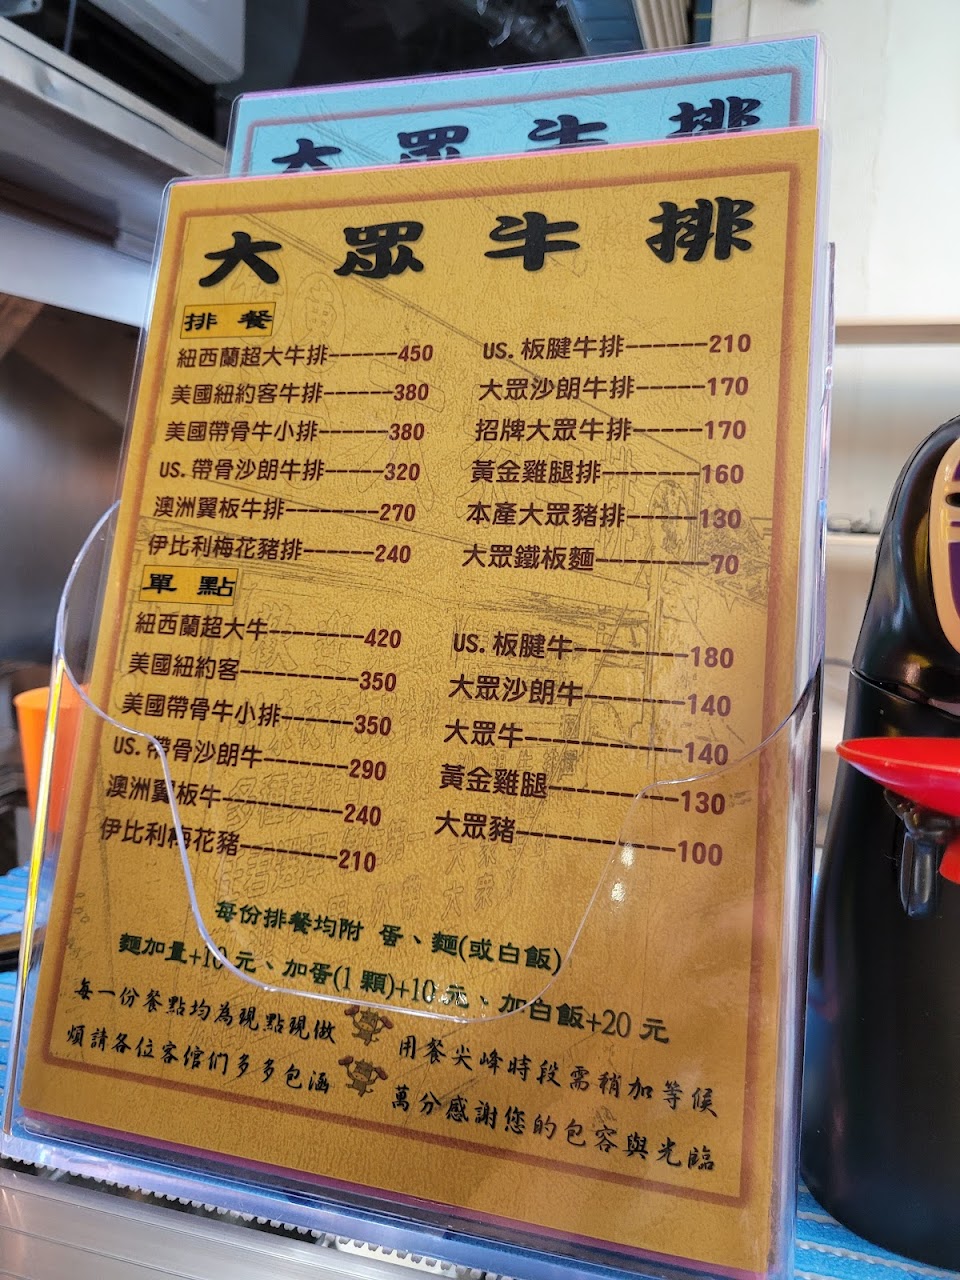 大眾牛排
大眾牛排
排餐
紐西蘭超大牛排------450
美國紐約客牛排------380
美國帶骨牛小排------380
US. 帶骨沙朗牛排-----320
澳洲翼板牛排--------270
伊比利梅花豬排------240
US. 板腱牛排------210
大眾沙朗牛排-----170
招牌大眾牛排-----170
黃金雞腿排-------160
本產大眾豬排-----130
大眾鐵板麵-------70
單點
紐西蘭超大牛--------420
美國紐約客----------350
美國帶骨牛小排------350
US. 帶骨沙朗牛-------290
澳洲翼板牛----------240
伊比利梅花豬--------210
US. 板腱牛--------180
大眾沙朗牛-------140
大眾牛-----------140
黃金雞腿---------130
大眾豬-----------100
每份排餐均附 蛋、麵(或白飯)
麵加量+10 元、加蛋(1 顆)+10 元、加白飯+20 元
每一份餐點均為現點現做 用餐尖峰時段需稍加等候
煩請各位客倌們多多包涵 萬分感謝您的包容與光臨